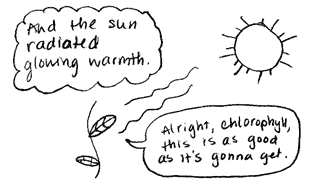 And the sun
radiated
glowing warmth.
Alright, chlorophyll,
this is as good
as it's gonna get.